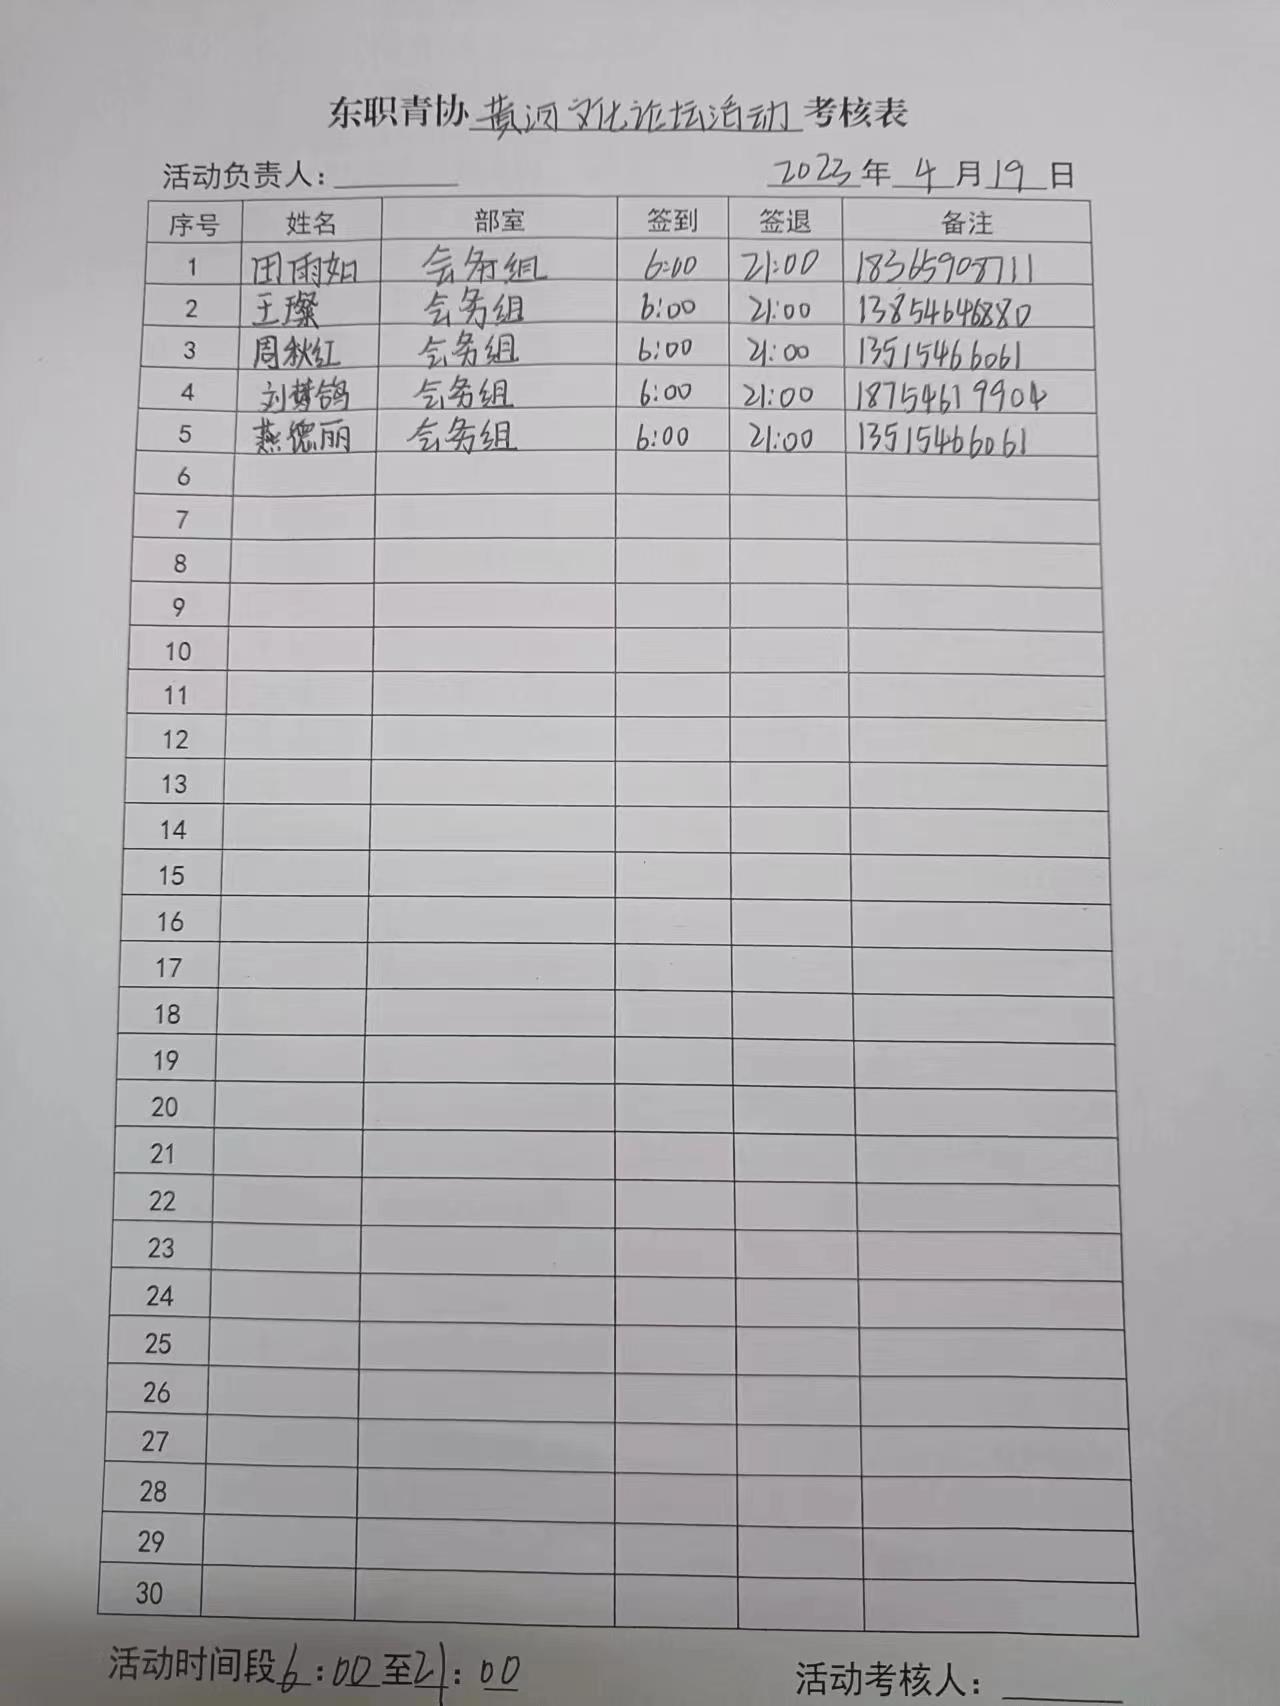 东职青协黄河文化论坛活动考核表
活动负责人：
2023年4月19日
序号 姓名 部室 签到 签退 备注
1 田雨如 会务组 6:00 21:00 18365908711
2 王璨 会务组 6:00 21:00 13854646880
3 周秋红 会务组 6:00 21:00 13515466061
4 刘梦鸽 会务组 6:00 21:00 18754619904
5 燕德丽 会务组 6:00 21:00 13515466061
6
7
8
9
10
11
12
13
14
15
16
17
18
19
20
21
22
23
24
25
26
27
28
29
30
活动时间段6:00至21:00
活动考核人：